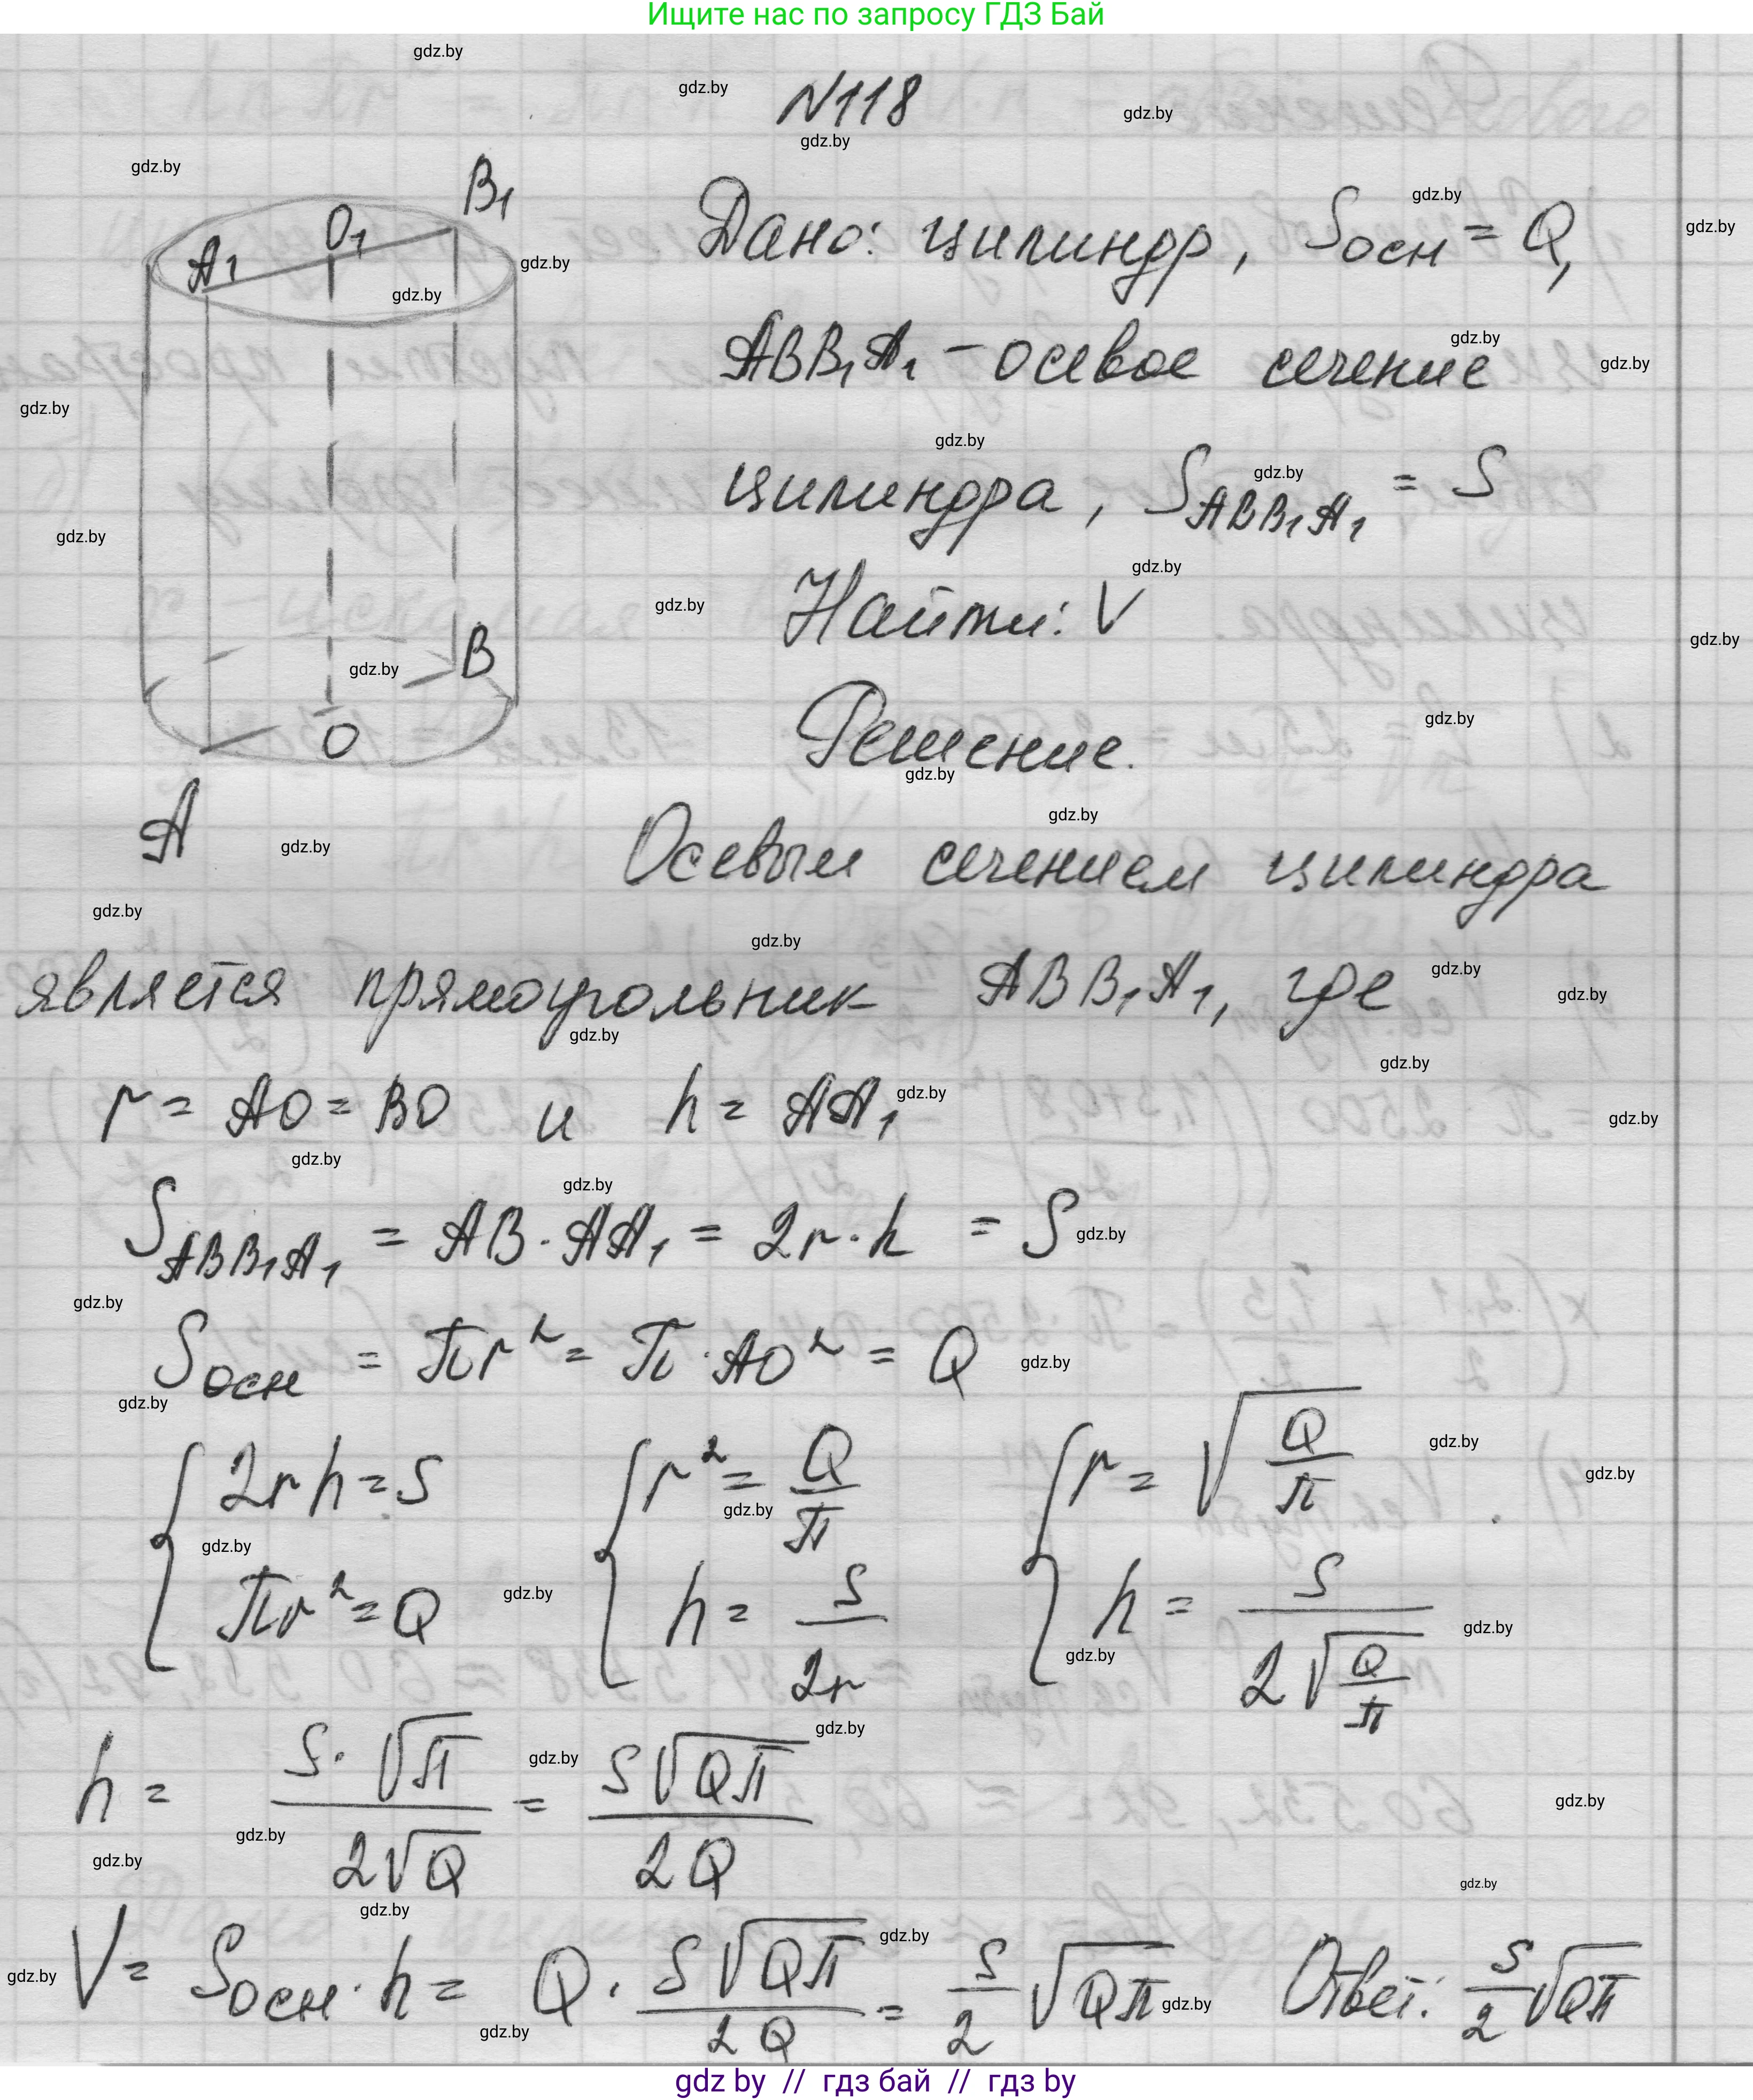 Ищите нас по запросу ГДЗ Бай
N118
Дано: цилиндр, Sосн = Q,
ABB₁A₁ – осевое сечение
цилиндра, S_ABB₁A₁ = S
Найти: V
Решение.
A₁ O₁ B₁
B
O
A
Осевым сечением цилиндра
является прямоугольник ABB₁A₁, где
r = AO = BO и h = AA₁
S_ABB₁A₁ = AB · AA₁ = 2r · h = S
Sосн = πr² = π · AO² = Q
{ 2rh = S { r² = Q/π { r = √(Q/π)
{ πr² = Q { h = S/2r { h = S/(2√(Q/π))
h = S·√π / 2√Q = S√Qπ / 2Q
V = Sосн · h = Q · S√Qπ / 2Q = S/2 √Qπ Ответ: S/2 √Qπ
gdz by // гдз бай // гдз by